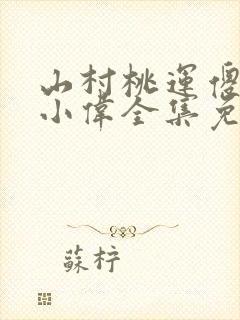 山村桃運傻
小偉全集免
蘇柠